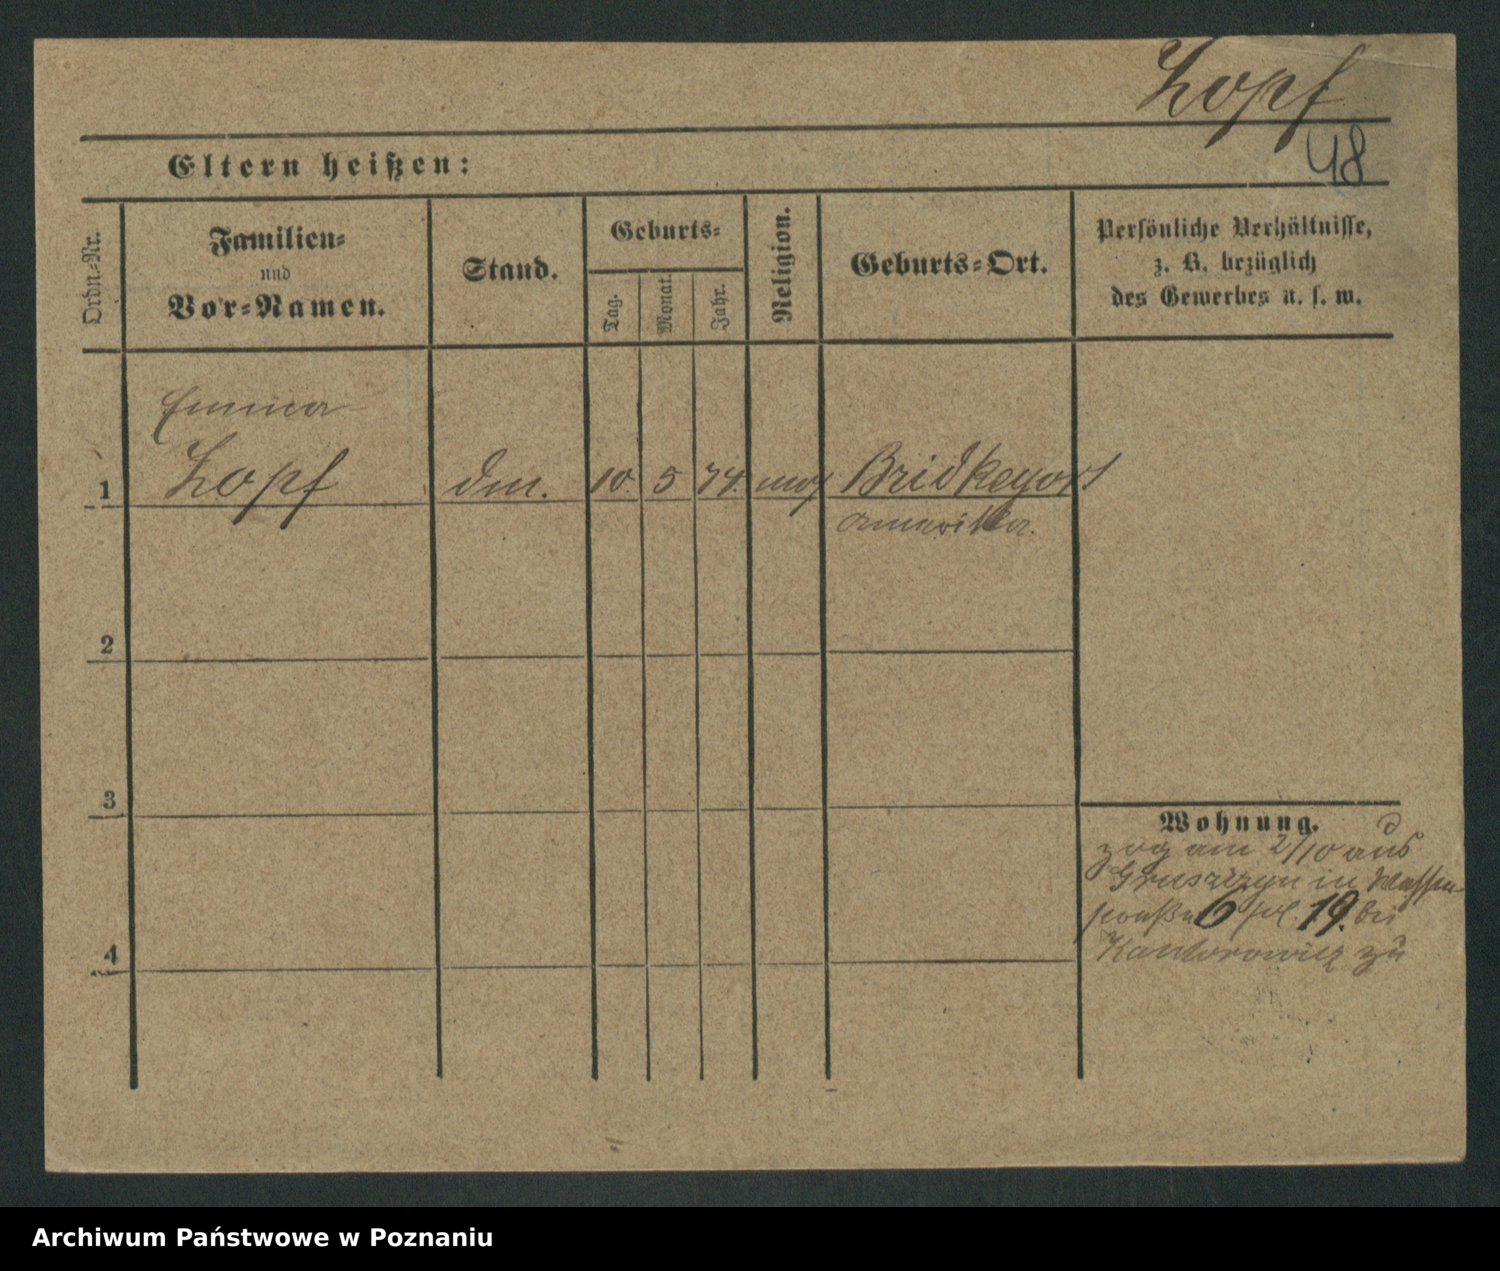 Zopf
48
Eltern heißen:
Ordn.-Nr.
Familien-
und
Vor-Namen.
Stand.
Geburts-
Tag.
Monat.
Jahr.
Religion.
Geburts-Ort.
Persönliche Verhältnisse,
z. B. bezüglich
des Gewerbes u. s. w.
Emma
1 Zopf 10. 5 74. Bridkeport
Amerika.
2
3
Wohnung.
zog am 2/10 aus
Gruszczyn in
6 19. bei
4
Kantorowicz zu
Archiwum Państwowe w Poznaniu